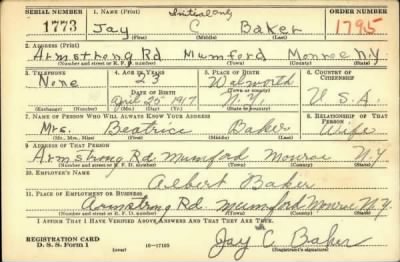 SERIAL NUMBER 1. NAME (Print) Initial only ORDER NUMBER
1773 Jay C Baker 1795
(First) (Middle) (Last)
2. ADDRESS (Print)
Armstrong Rd Mumford Monroe N.Y.
(Number and street or R. F. D. number) (Town) (County) (State)
3. TELEPHONE 4. AGE IN YEARS 5. PLACE OF BIRTH 6. COUNTRY OF CITIZENSHIP
None 23 Walworth
DATE OF BIRTH (Town or county)
April 25 1917 N.Y. U.S.A.
(Exchange) (Number) (Mo.) (Day) (Yr.) (State or country)
7. NAME OF PERSON WHO WILL ALWAYS KNOW YOUR ADDRESS 8. RELATIONSHIP OF THAT PERSON
Mrs. Beatrice Baker Wife
(Mr., Mrs., Miss) (First) (Middle) (Last)
9. ADDRESS OF THAT PERSON
Armstrong Rd. Mumford Monroe N.Y
(Number and street or R. F. D. number) (Town) (County) (State)
10. EMPLOYER'S NAME
Albert Baker
11. PLACE OF EMPLOYMENT OR BUSINESS
Armstrong Rd Mumford Monroe N.Y.
(Number and street or R. F. D. number) (Town) (County) (State)
I AFFIRM THAT I HAVE VERIFIED ABOVE ANSWERS AND THAT THEY ARE TRUE.
REGISTRATION CARD
D. S. S. Form 1 (over) 16—17105 Jay C Baker
(Registrant's signature)